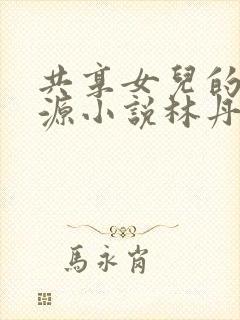 共享女兒的
源小說林丹
馬永肖